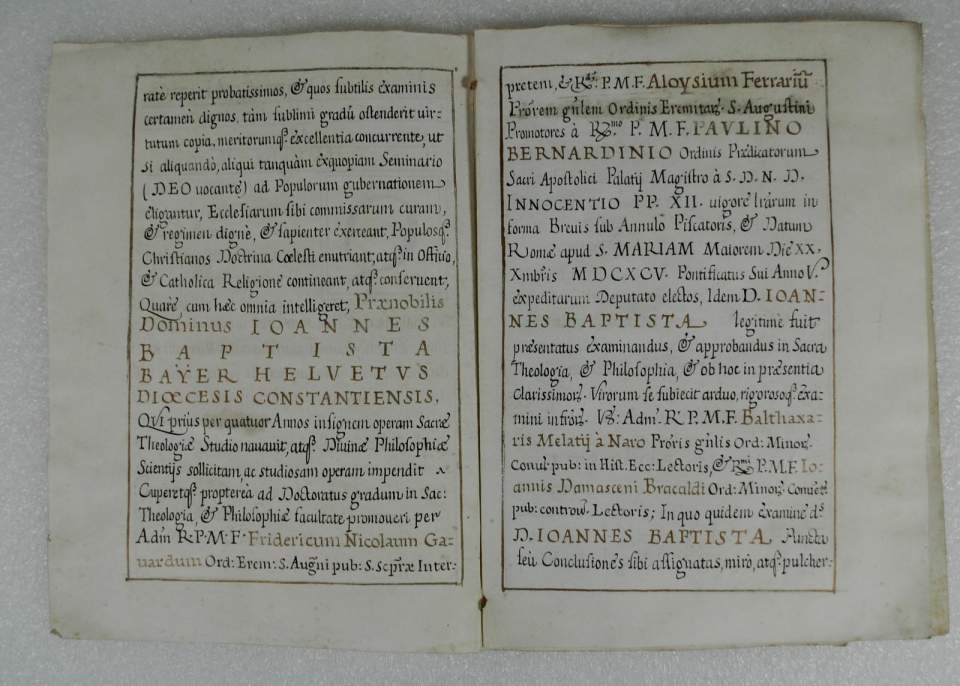 ratè reperit probatissimos, & quos subtilis examinis
certamen dignos, tàm sublimi gradú ostenderit uir-
tutum copia, meritorumq́; excellentia concurrente, ut
si aliquandò, aliqui tanquàm exquopiam Seminario
(DEO uocante) ad Populorum gubernationem
eligantur, Ecclesiarum sibi commissarum curam,
& regimen dignè, & sapienter exerceant, Populosq́;
Christianos Doctrina Cœlesti enutriant; atq́; in
& Catholica Religione contineant, atq́; conseruent;
Quare cum hæc omnia intelligeret; Prænobilis
Dominus IOANNES
BAPTISTA
BAŸER HELVETVS
DIŒCESIS CONSTANTIENSIS,
QVI priùs per quatuor Annos insignem operam Sacræ
Theologiæ Studio nauauit, atq́; Diuinæ Philosophiæ
Scientijs sollicitam, ac studiosam operam impendit
Cuperetq́; propterea ad Doctoratus gradum in Sac:
Theologia, & Philosophiæ facultate promoueri per
Adm R.P.M.F. Fridericum Nicolaum Ga-
uardum Ord: Erem: S. Augñi pub: S. Scpræ Inter-
pretem, & P.M.F. Aloysium Ferrariũ
Priorem gñlem Ordinis Eremitar. S. Augustini
Promotores à Rmo P. M. F. PAVLINO
BERNARDINIO Ordinis Prædicatorum
Sacri Apostolici Palatij Magistro à S. D. N. D.
INNOCENTIO PP. XII. uigore lrarum in
forma Breuis sub Annulo Piscatoris, & Datum
Romæ apud S. MARIAM Maiorem Die XX.
Xmbris MDCXCV. Pontificatus Sui Anno V.
expeditarum Deputato electos, Idem D. IOAN-
NES BAPTISTA legitimè fuit
præsentatus examinandus, & approbandus in Sacra
Theologia, & Philosophia, & ob hoc in præsentia
Clarissimor. Virorum se subiecit arduo, rigorosoq́; exa-
mini infror. Vz. Adm. R. P. M. F. Balthaxa-
ris Melatij à Naro Prioris gñlis Ord: Minor.
Conuel pub: in Hist. Ecc: Lectoris, & Rmi P.M.F. Io-
annis Damasceni Bracaldi Ord: Minor. Conuēt
pub: controu. Lectoris; In quo quidem examine ds
D. IOANNES BAPTISTA Puncta
seù Conclusiones sibi assignatas, mirò, atq́; pulcher-